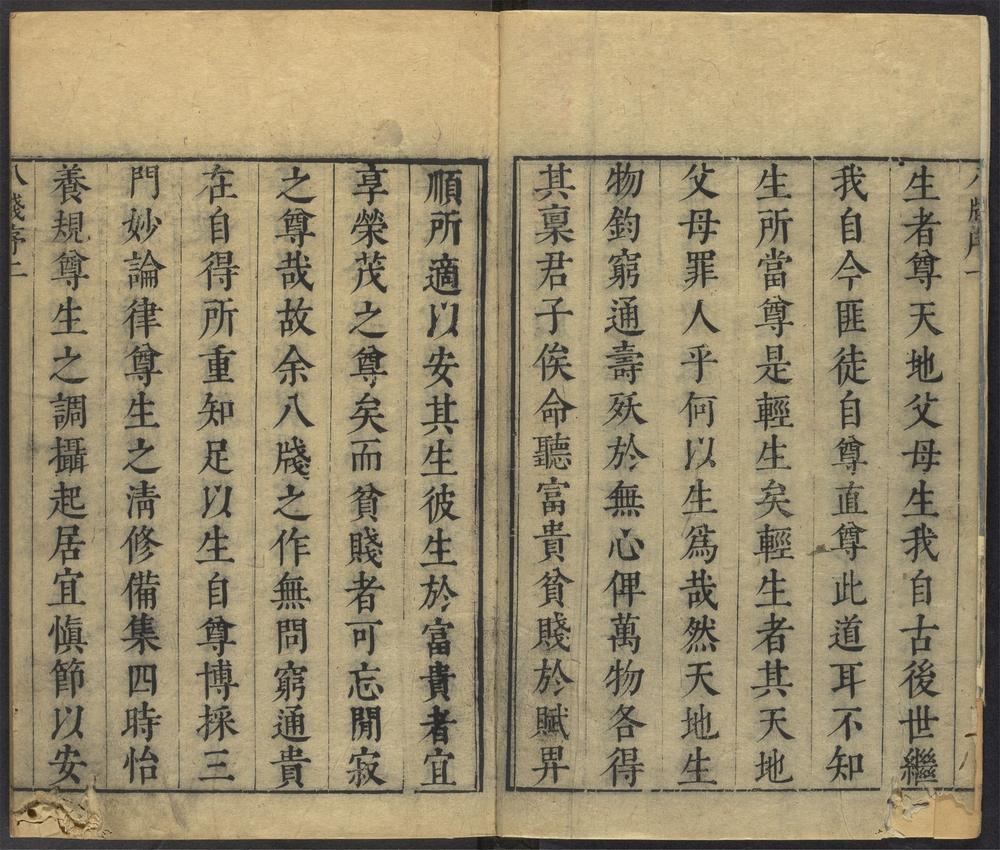 生者尊天地父母生我自古後世繼
我自今匪徒自尊直尊此道耳不知
生所當尊是輕生矣輕生者其天地
父母罪人乎何以生爲哉然天地生
物鈞窮通壽殀於無心俾萬物各得
其稟君子俟命聽富貴貧賤於賦畀
順所適以安其生彼生於富貴者宜
享榮茂之尊矣而貧賤者可忘閒寂
之尊哉故余八牋之作無問窮通貴
在自得所重知足以生自尊博採三
門妙論律尊生之清修備集四時怡
養規尊生之調攝起居宜慎節以安
八牋序二